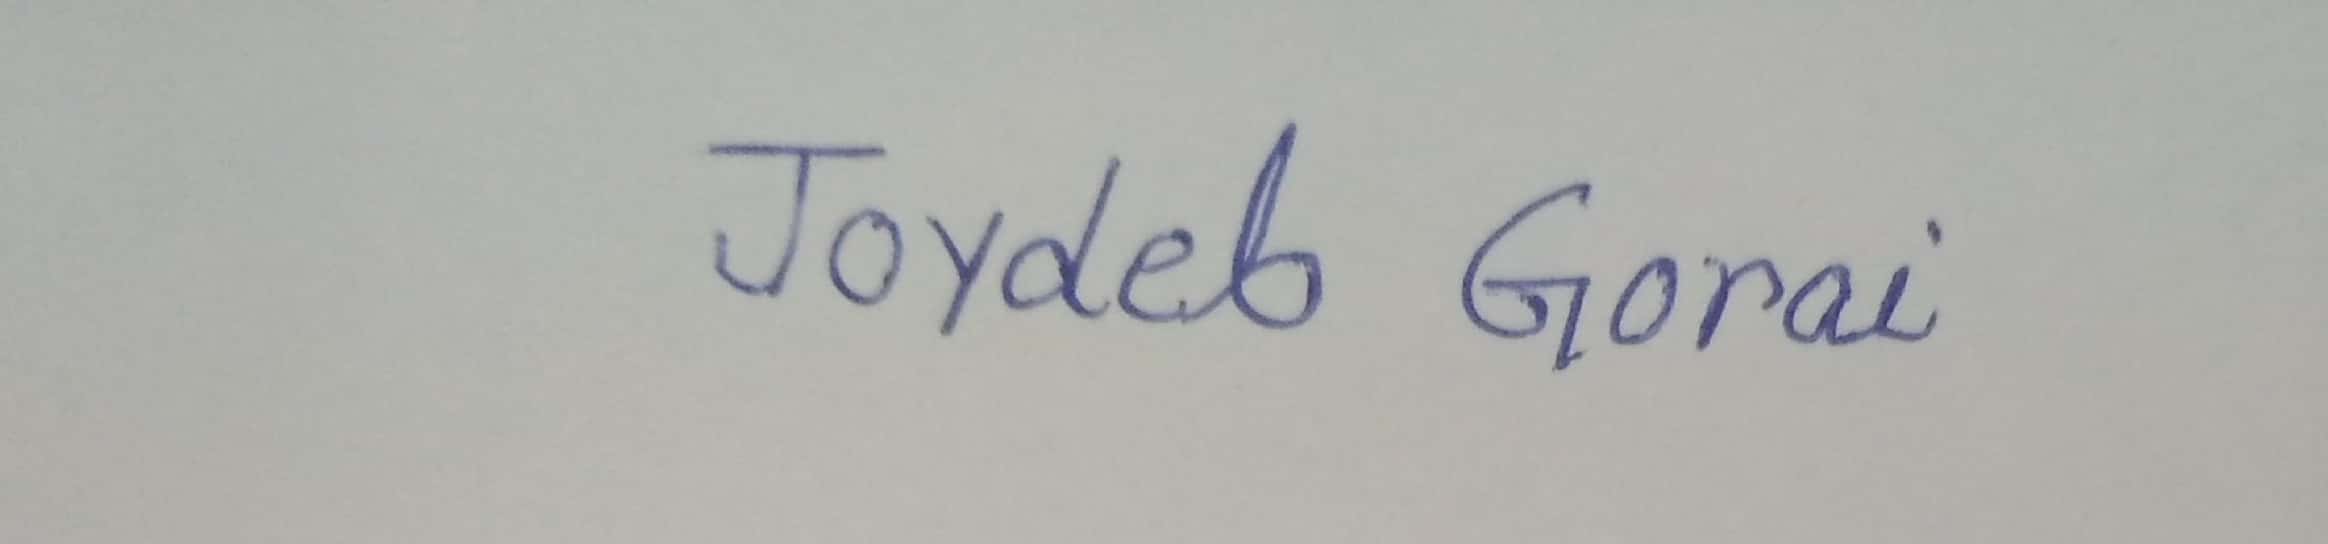 Joydeb Gorai